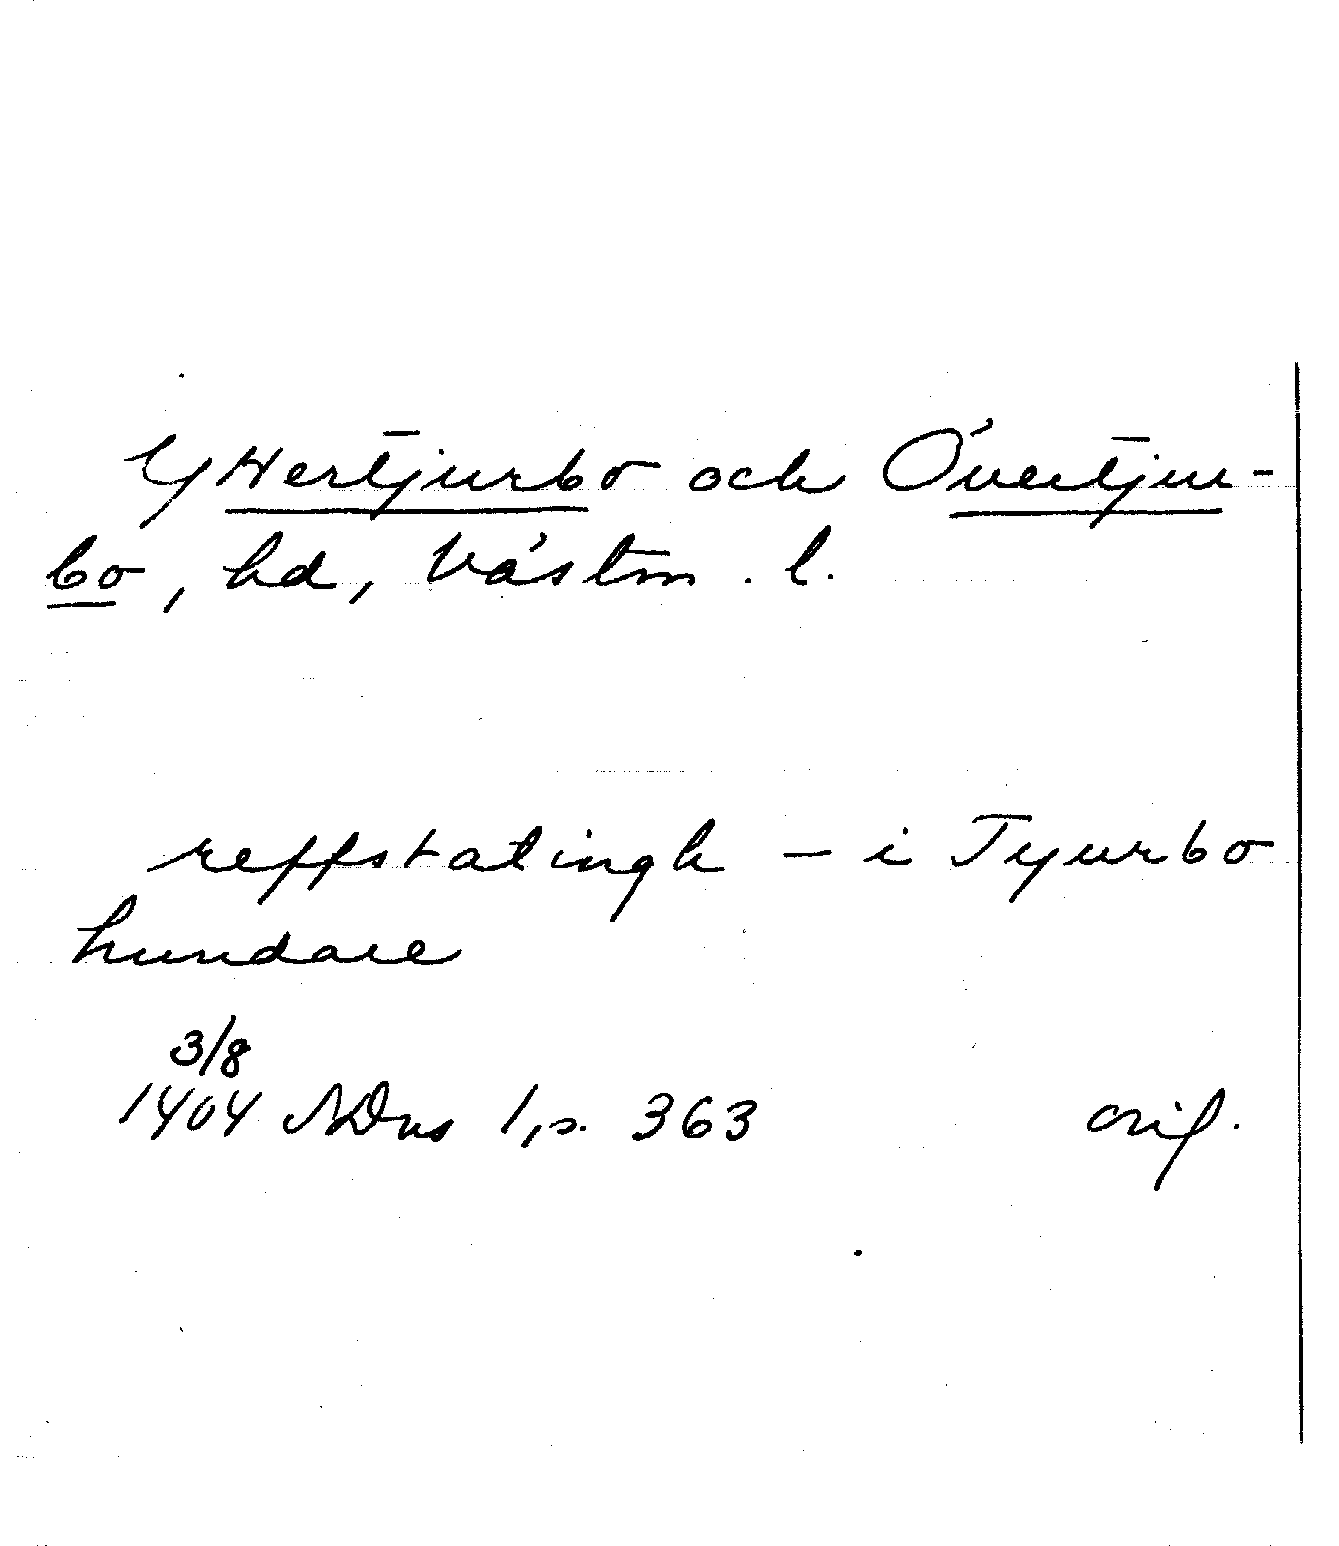 Yttertjurbo och Övertjur-
bo, hd, Västm. l.
reffstatingh – i Tyurbo
hundare
3/8
1404 NDns 1, s. 363 orig.